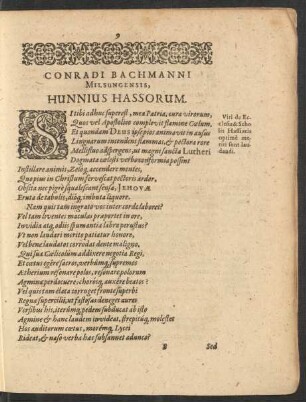 9
CONRADI BACHMANNI
MELSUNGENSIS,
HUNNIUS HASSORUM.
SI tibi adhuc superest, mea Patria, cura virorum,
Quos vel Apostolico implevit flamine Cœlum,
Et quondam DEUS ipse pios animavit in ausus
Linguarum intendens flammas, & pectora rore
Mellifluo adspergens, ut magni sancta Lutheri
Dogmata cœlestis verba conformia possint
Instillare animis, Zeloq; accendere mentes,
Quo pius in Christum fervescat pectoris ardor,
Obsita nec pigro squalescant sensa, JEHOVÆ
Eruta de tabulis, dióq; imbuta liquore.
Nam quis tam ingrato vos inter corde laboret?
Vel tam livenses maculas praportet in ore,
Invidia atq; odiis spumantia labra perustus?
Ut non laudari meritò patiatur honore,
Vel bene laudatos corrodat dente maligno,
Qui sua Cœlicolûm addixere negotia Regi,
Et coetus egêre sacros, verbumq; supremes
Ætherium resonare polos, resonare polorum
Agmina perdocuere, choróq; auxere beato?
Vel quis tam elata torruget fronte superbi
Regna supercilii, ut fastosas deneget aures
Versibus his, iterumq; pedem subducat ab isto
Agmine & hanc laudem invideat, strepitúq; molestet
Hos auditorum coetus, morémq; Lycei
Rideat, & naso verba hæc subsannet adunco?
Viri de Ec-
clesia & Scho-
lis Hassiacis
optimè me-
riti sunt lau-
dandi.
B
Sed